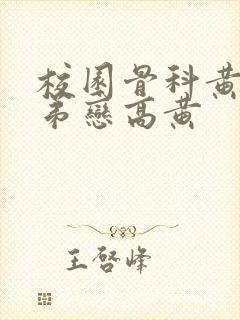 校園骨科黄
弟戀高黄
王啓峰